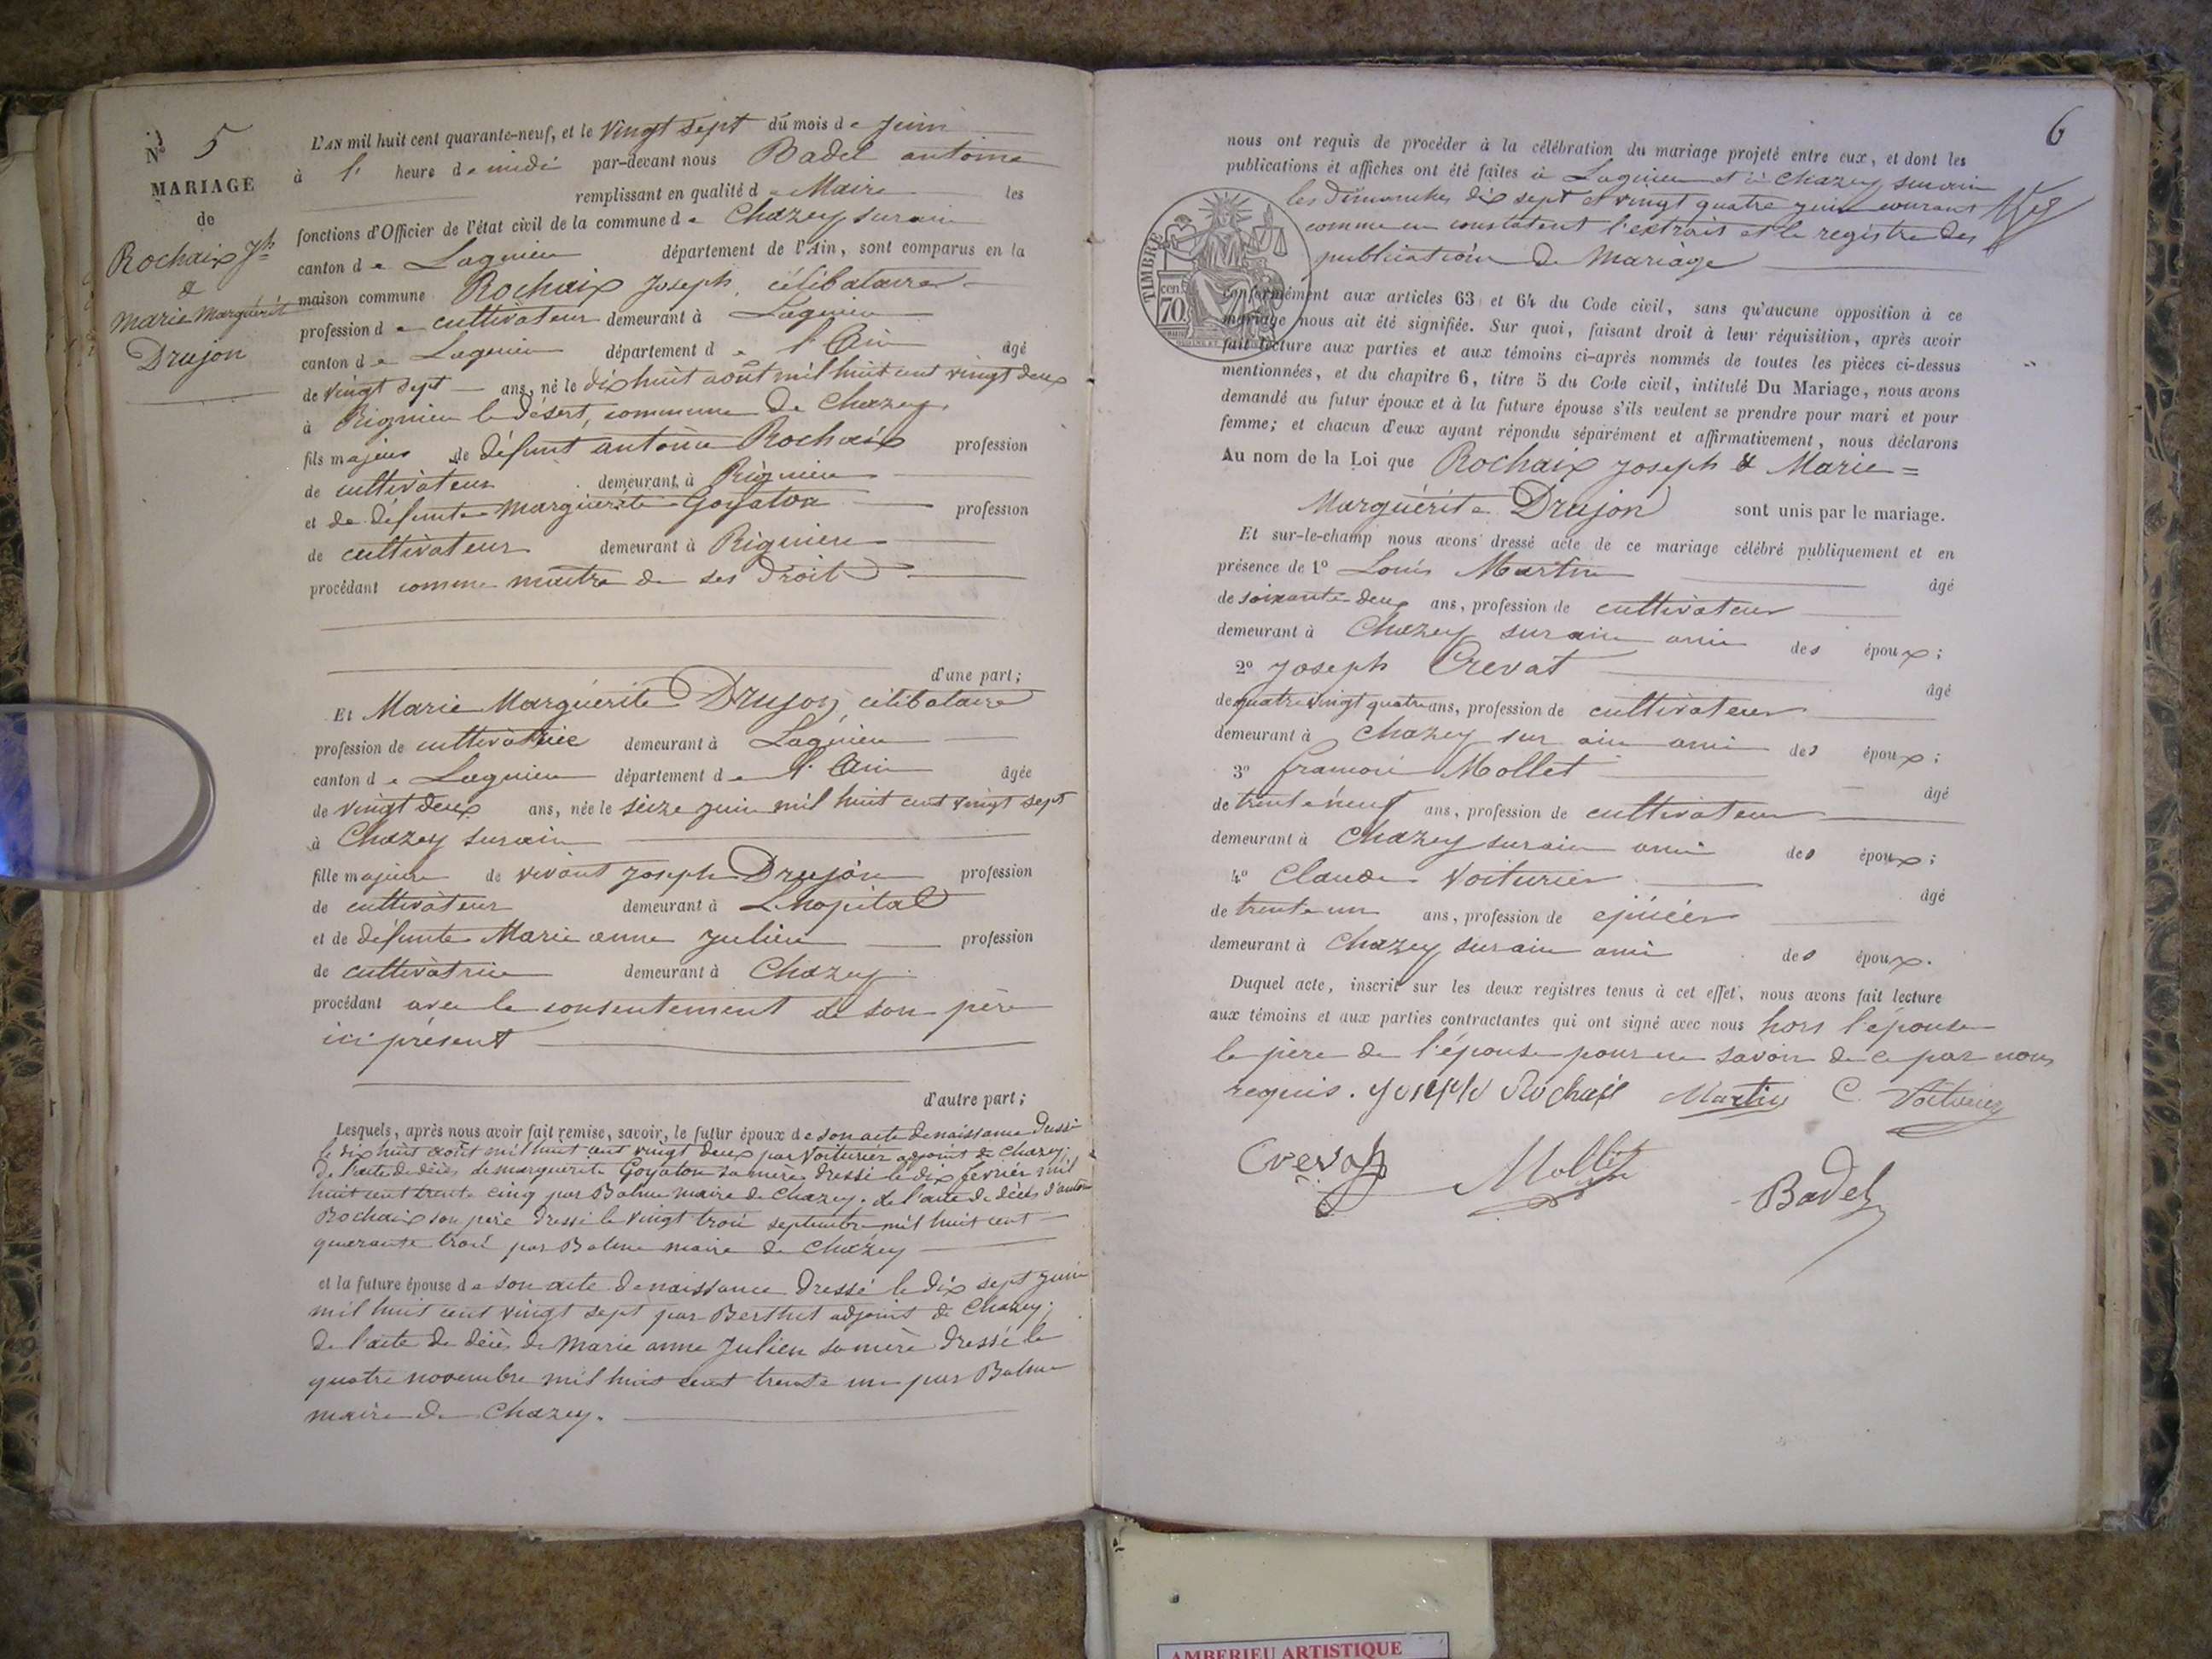 N° 5
MARIAGE
de
Rochaix Jh
&
Marie Marguérite
Drujon
L'AN mil huit cent quarante-neuf, et le vingt sept du mois de juin
à l' heure de midi par-devant nous Badel antoine
remplissant en qualité de Maire les
fonctions d'Officier de l'état civil de la commune de Chazey sur ain
canton de Lagnieu département de l'Ain, sont comparus en la
maison commune Rochaix Joseph, célibataire
profession de cultivateur demeurant à Lagnieu
canton de Lagnieu département de l'Ain âgé
de vingt sept ans, né le dix huit août mil huit cent vingt deux
à Rignieu le désert, commune de Chazey
fils majeur de défunt antoine Rochaix profession
de cultivateur demeurant à Rignieu
et de défunte Marguérite Goyaton profession
de cultivateur demeurant à Rignieu
procédant comme maitre de ses droits
d'une part;
Et Marie Marguérite Drujon, célibataire
profession de cultivatrice demeurant à Lagnieu
canton de Lagnieu département de l'Ain âgée
de vingt deux ans, née le seize juin mil huit cent vingt sept
à Chazey sur ain
fille majeure de vivant Joseph Drujon profession
de cultivateur demeurant à Lhopital
et de défunte Marie anne Julien profession
de cultivatrice demeurant à Chazey
procédant avec le consentement de son père
ici présent
d'autre part;
Lesquels, après nous avoir fait remise, savoir, le futur époux de son acte de naissance dressé
le dix huit août mil huit cent vingt deux par Voiturier adjoint de Chazey;
de l'acte de décès de marguérite Goyaton sa mère dressé le dix février mil
huit cent trente cinq par Balme maire de Chazey; de l'acte de décès d'antoine
Rochaix son père dressé le vingt trois septembre mil huit cent
quarante trois par Balme maire de Chazey
et la future épouse de son acte de naissance dressé le dix sept juin
mil huit cent vingt sept par Berthet adjoint de Chazey;
de l'acte de décès de Marie anne Julien sa mère dressé le
quatre novembre mil huit cent trente un par Balme
maire de Chazey.
6
nous ont requis de procéder à la célébration du mariage projeté entre eux, et dont les
publications et affiches ont été faites à Lagnieu et à Chazey sur ain
les dimanches dix sept et vingt quatre juin courant
comme en constatent l'extrait et le registre des
publications de Mariage
TIMBRE
cen.
70
conformément aux articles 63 et 64 du Code civil, sans qu'aucune opposition à ce
mariage nous ait été signifiée. Sur quoi, faisant droit à leur réquisition, après avoir
fait lecture aux parties et aux témoins ci-après nommés de toutes les pièces ci-dessus
mentionnées, et du chapitre 6, titre 5 du Code civil, intitulé Du Mariage, nous avons
demandé au futur époux et à la future épouse s'ils veulent se prendre pour mari et pour
femme; et chacun d'eux ayant répondu séparément et affirmativement, nous déclarons
Au nom de la Loi que Rochaix Joseph & Marie=
Marguérite Drujon sont unis par le mariage.
Et sur-le-champ nous avons dressé acte de ce mariage célébré publiquement et en
présence de 1° Louis Martin âgé
de soixante deux ans, profession de cultivateur
demeurant à Chazey sur ain ami des époux;
2° Joseph Crevat âgé
de quatre vingt quatre ans, profession de cultivateur
demeurant à Chazey sur ain ami des époux;
3° francois Mollet âgé
de trente neuf ans, profession de cultivateur
demeurant à Chazey sur ain ami des époux;
4° Claude Voiturier âgé
de trente un ans, profession de épicier
demeurant à Chazey sur ain ami des époux.
Duquel acte, inscrit sur les deux registres tenus à cet effet, nous avons fait lecture
aux témoins et aux parties contractantes qui ont signé avec nous hors l'épouse
le père de l'épouse pour ne savoir de ce par nous
requis. Joseph Rochaix Martin C. Voiturier
Crevat Mollet Badel
AMBERIEU ARTISTIQUE